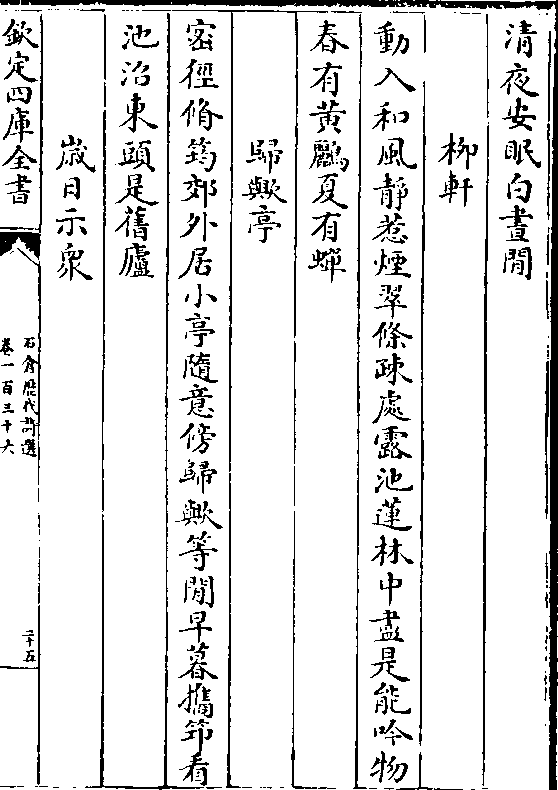 清夜安眠白晝閒
柳軒
動入和風靜惹煙翠條疎處露池蓮林中盡是能吟物
春有黃鸝夏有蟬
歸歟亭
密徑脩筠郊外居小亭隨意傍歸歟等閒早暮攜筇看
池沼東頭是舊廬
歳日示衆
欽定四庫全書
石倉歷代詩選
卷一百三十六
二十五